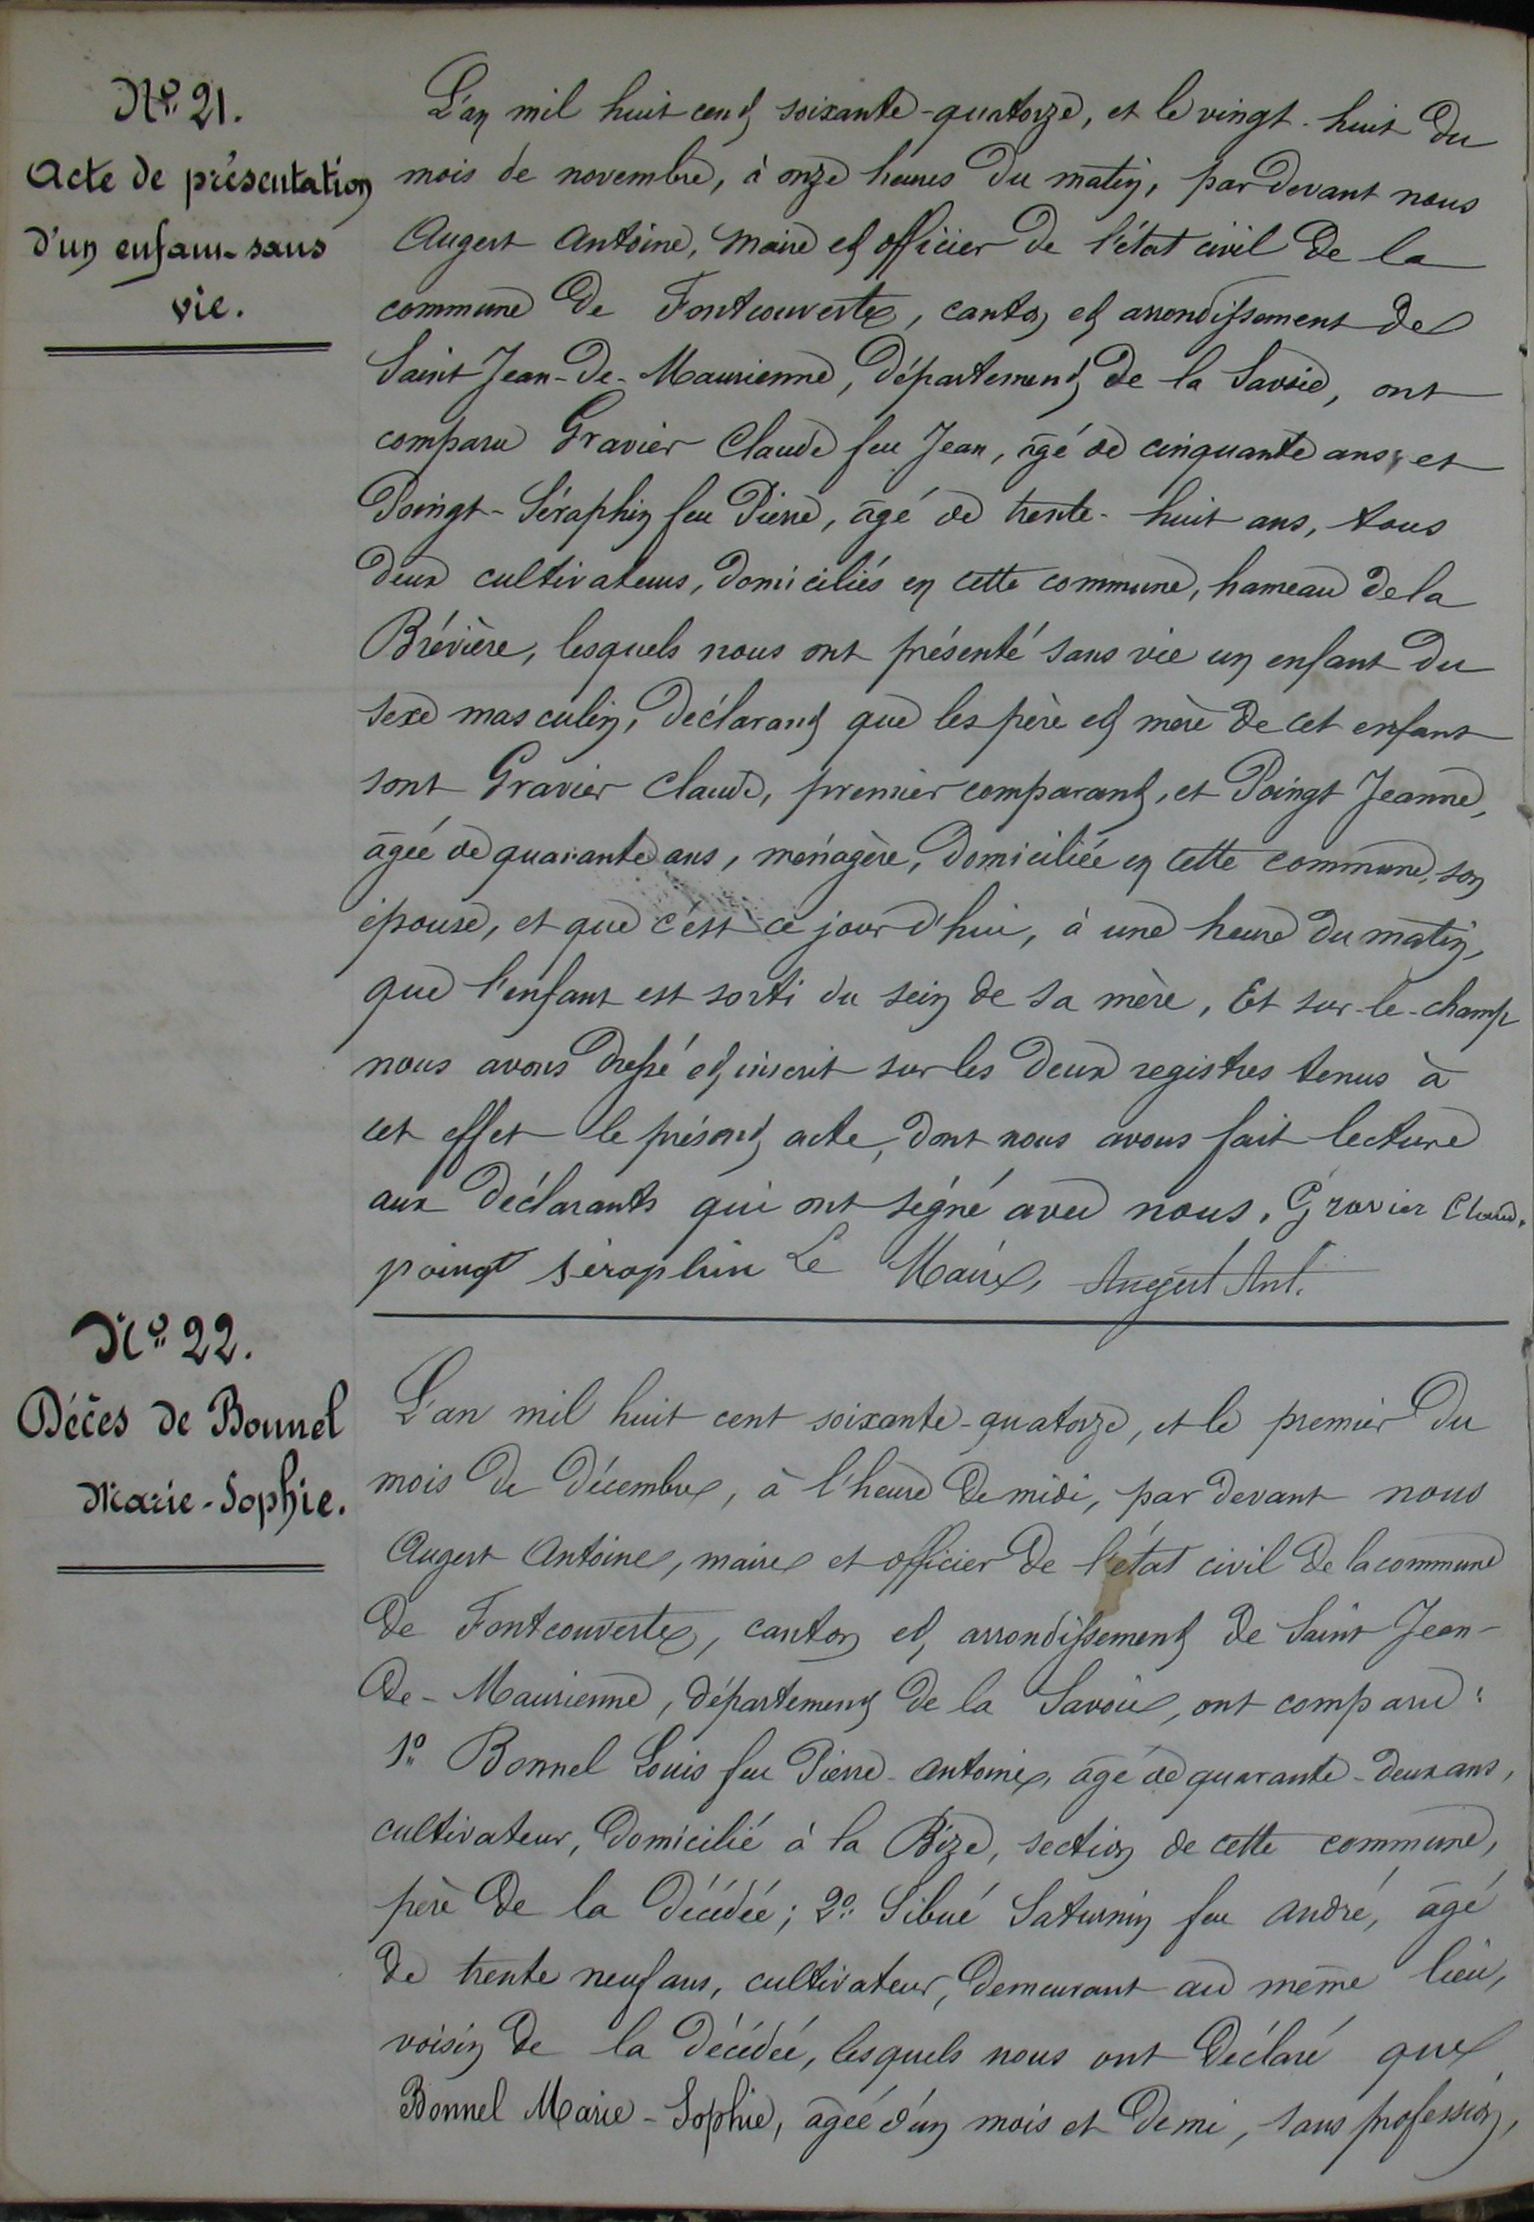 N° 21.
Acte de présentation
d'un enfant sans
vie.
L'an mil huit cent soixante-quatorze, et le vingt-huit du
mois de novembre, à onze heures du matin, par devant nous
Augert Antoine, Maire et officier de l'état civil de la
commune de Fontcouverte, canton et arrondissement de
Saint Jean-de-Maurienne, département de la Savoie, ont
comparu Gravier Claude feu Jean, âgé de cinquante ans, et
Poingt-Séraphin feu Pierre, âgé de trente-huit ans, tous
deux cultivateurs, domiciliés en cette commune, hameau de la
Brévière, lesquels nous ont présenté sans vie un enfant du
sexe masculin, déclarant que les père et mère de cet enfant
sont Gravier Claude, premier comparant, et Poingt Jeanne,
âgée de quarante ans, ménagère, domiciliée en cette commune, son
épouse, et que c'est ce jour d'hui, à une heure du matin,
que l'enfant est sorti du sein de sa mère, Et sur-le-champ
nous avons dressé et inscrit sur les deux registres tenus à
cet effet le présent acte, dont nous avons fait lecture
aux déclarants qui ont signé avec nous. Gravier Claud.
poingt séraphin Le Maire, Augert Ant.
N° 22.
Décès de Bonnel
Marie-Sophie.
L'an mil huit cent soixante-quatorze, et le premier du
mois de décembre, à l'heure de midi, par devant nous
Augert Antoine, maire et officier de l'état civil de la commune
de Fontcouverte, canton et arrondissement de Saint Jean-
de-Maurienne, département de la Savoie, ont comparu:
1° Bonnel Louis feu Pierre-Antoine, âgé de quarante-deux ans,
cultivateur, domicilié à la Bize, section de cette commune,
père de la décédée; 2° Sibué Saturnin feu André, âgé
de trente neuf ans, cultivateur, demeurant au même lieu,
voisin de la décédée, lesquels nous ont déclaré que
Bonnel Marie-Sophie, âgée d'un mois et demi, sans profession,